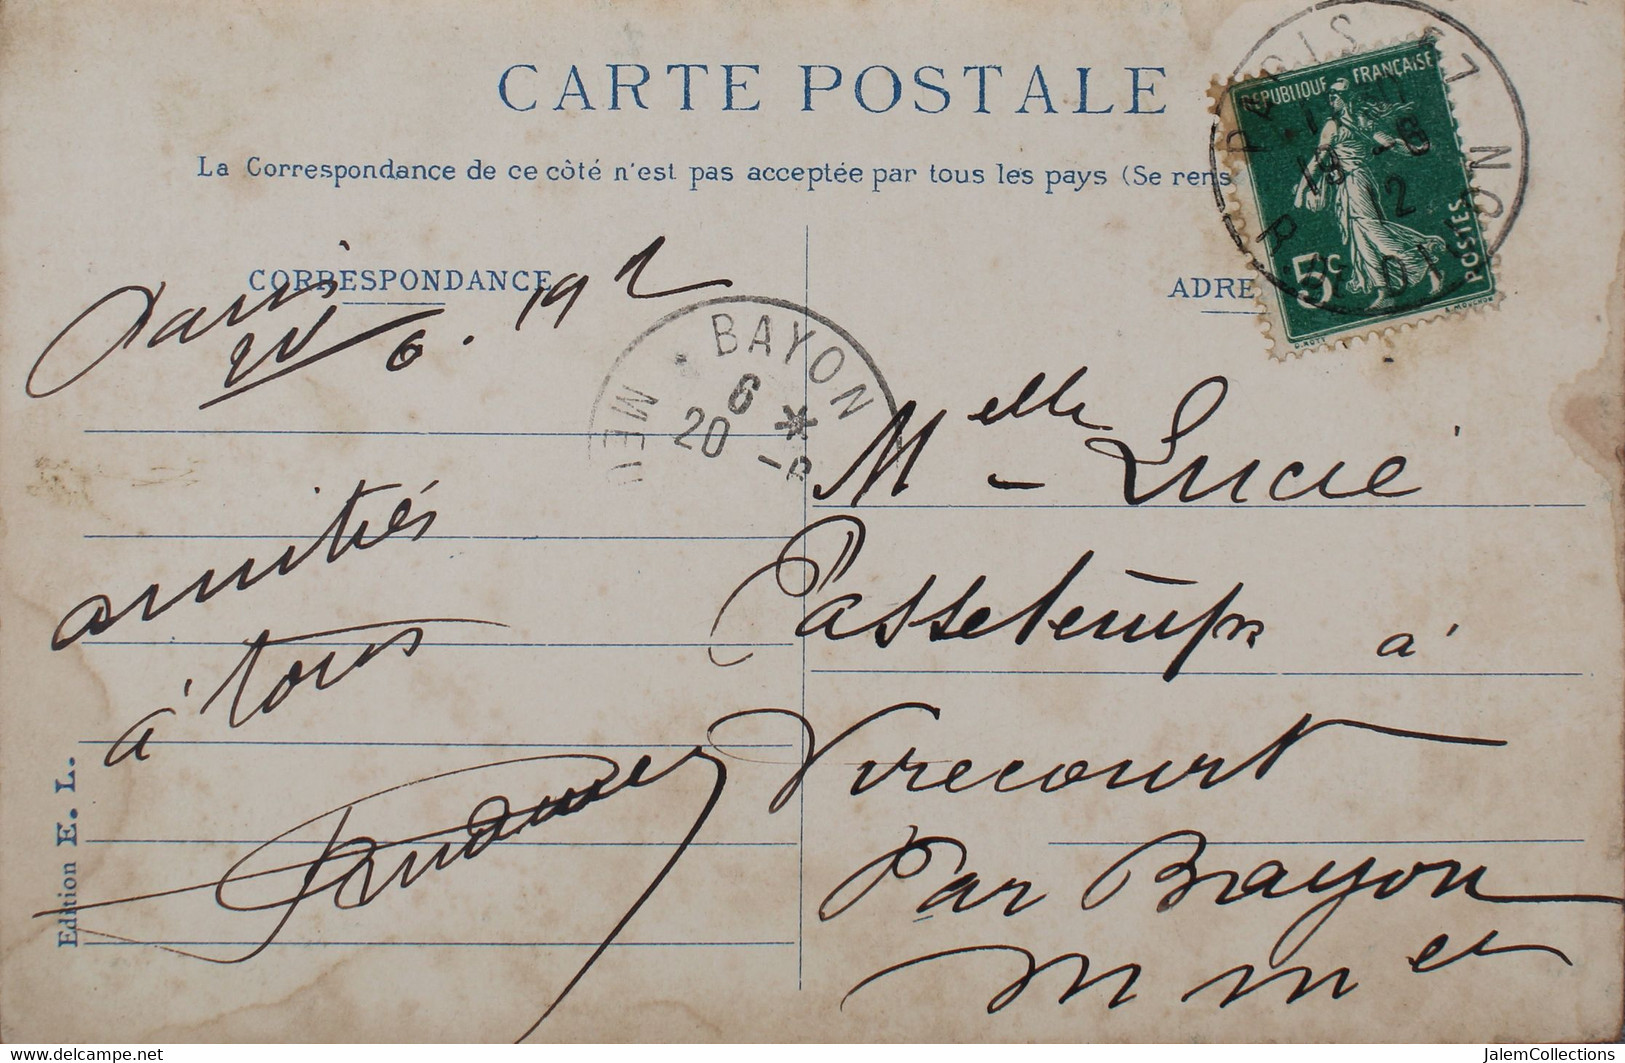 CARTE POSTALE
La Correspondance de ce côté n'est pas acceptée par tous les pays (Se rens
CORRESPONDANCE
ADRE
REPUBLIQUE FRANÇAISE
POSTES
5c
PARIS
19 -8
12
BAYON
6 *
20 -8
MEU
Paris
6. 191
amitiés
à tous
Melle Lucie
Passetemps à
Virecourt
Par Bayon
M Melle
Edition E. L.
delcampe.net
JalemCollections